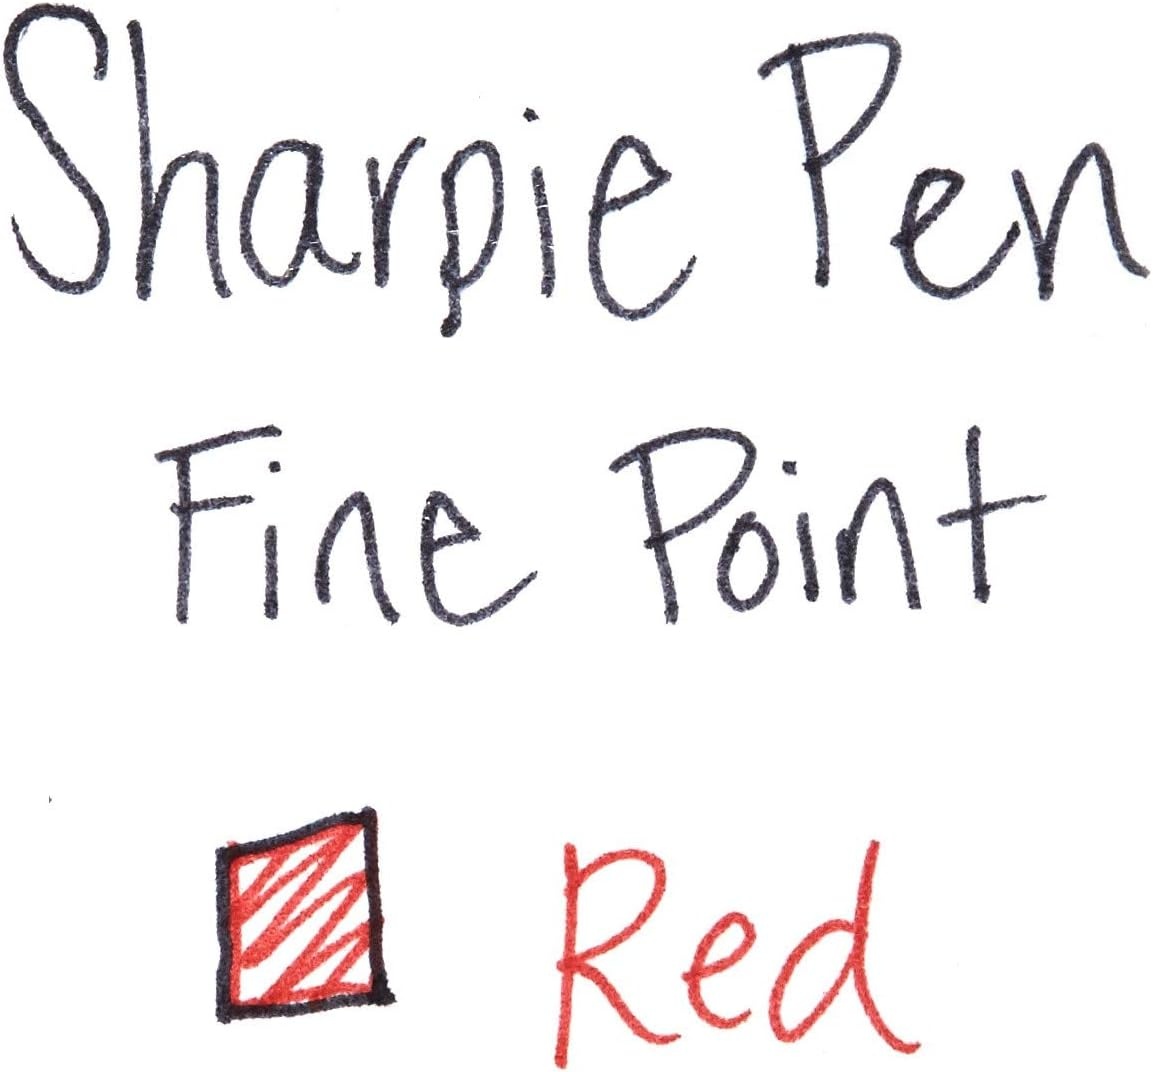 Sharpie Pen
Fine Point
Red